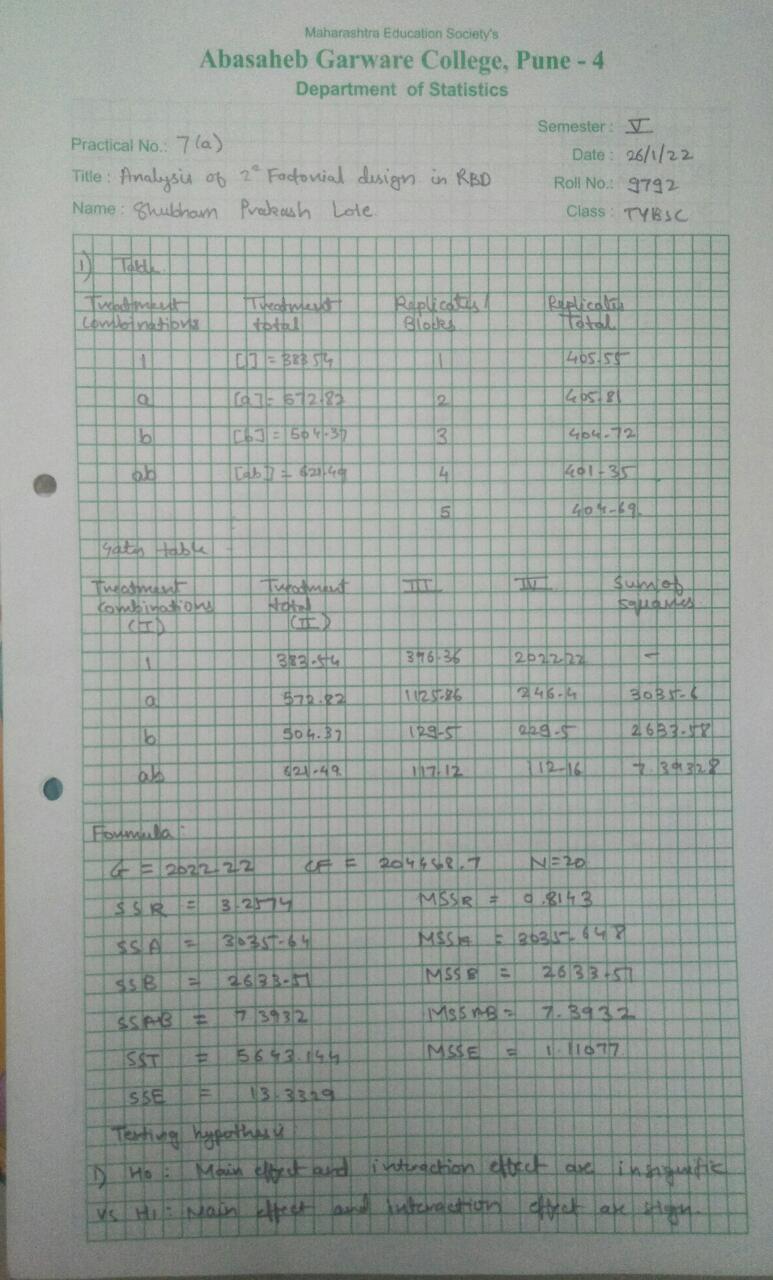 Maharashtra Education Society's
Abasaheb Garware College, Pune - 4
Department of Statistics
Semester : V
Practical No.: 7(a)
Date : 26/1/22
Title : Analysis of 2² Factorial design in RBD
Roll No.: 9792
Name : Shubham Prakash Lole
Class : TYBSC
1) Table
Treatment combinations Treatment total Replicates/ Blocks Replicates Total
1 [1] = 383.54 1 405.55
a [a] = 572.82 2 405.81
b [b] = 504.37 3 404-72
ab [ab] = 621.49 4 401-35
5 404-69
Yates table
Treatment combinations (I) Treatment total (II) III IV Sum of squares
1 383-54 2022.22 -
a 572.82 1125.86 246.4 3035-6
b 504.37 129-5 229-5 2633-58
ab 621-49 117.12 112-16 7.39328
Formula :
G = 2022.22 CF = 204468.7 N=20
SSR = 3.2574 MSSR = 0.8143
SSA = 3035-64 MSSA = 3035-648
SSB = 2633-57 MSSB = 2633.57
SSAB = 7.3932 MSSAB = 7.3932
SST = 5643.144 MSSE = 1.11077
SSE = 13.3329
Testing hypothesis
1) Ho : Main effect and interaction effect are insignific
vs H1 : Main effect and interaction effect are sign.